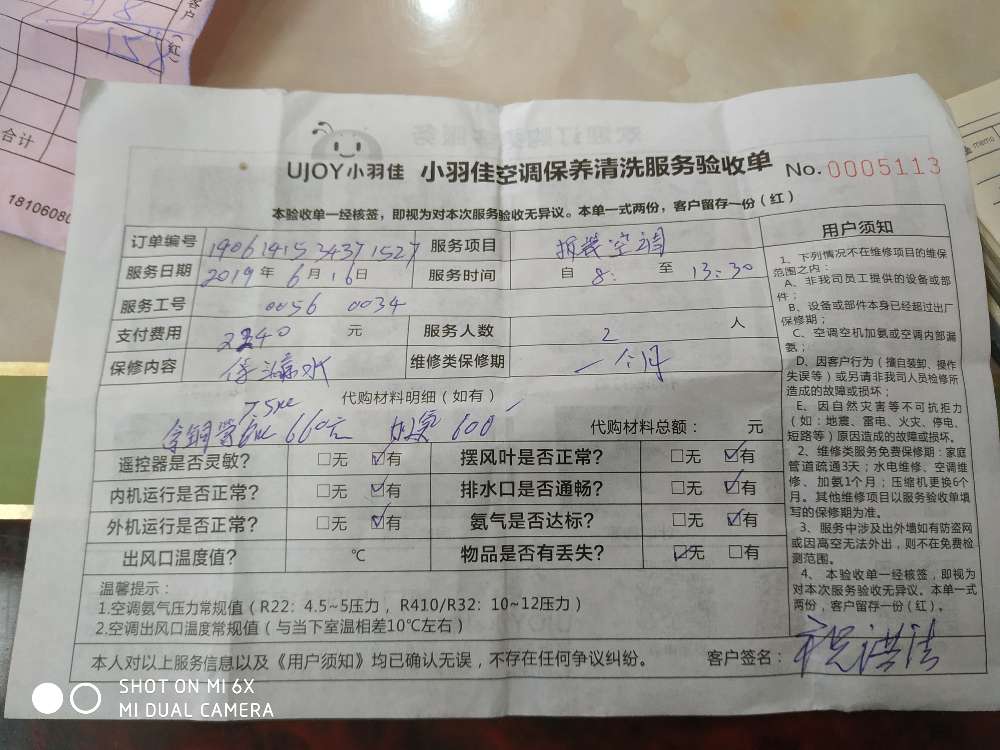 客户
(红)
158
合计
18106080
UJOY小羽佳 小羽佳空调保养清洗服务验收单 No.0005113
本验收单一经核签，即视为对本次服务验收无异议。本单一式两份，客户留存一份（红）
订单编号 1906141534371527 服务项目 拆装空调
服务日期 2019年6月16日 服务时间 自8:至13:30
服务工号 0056 0034
支付费用 2240 元 服务人数 2 人
保修内容 漏水 维修类保修期 一个月
代购材料明细（如有）
7.5米
铜管 660元 600
代购材料总额： 元
遥控器是否灵敏？ □无 ☑有 摆风叶是否正常？ □无 ☑有
内机运行是否正常？ □无 ☑有 排水口是否通畅？ □无 ☑有
外机运行是否正常？ □无 ☑有 氨气是否达标？ □无 ☑有
出风口温度值？ ℃ 物品是否有丢失？ ☑无 □有
温馨提示：
1.空调氨气压力常规值（R22：4.5~5压力，R410/R32：10~12压力）
2.空调出风口温度常规值（与当下室温相差10℃左右）
本人对以上服务信息以及《用户须知》均已确认无误，不存在任何争议纠纷。 客户签名：祝洪法
用户须知
1、下列情况不在维修项目的维保
范围之内：
A、非我司员工提供的设备或部
件；
B、设备或部件本身已经超过出厂
保修期；
C、空调空机加氨或空调内部漏
氨；
D、因客户行为（擅自装卸、操作
失误等）或另请非我司人员检修所
造成的故障或损坏；
E、因自然灾害等不可抗拒力
（如：地震、雷电、火灾、停电、
短路等）原因造成的故障或损坏。
2、维修类服务免费保修期：家庭
管道疏通3天；水电维修、空调维
修、加氨1个月；压缩机更换6个
月。其他维修项目以服务验收单填
写的保修期为准。
3、服务中涉及出外墙如有防盗网
或因高空无法外出，则不在免费检
测范围。
4、本验收单一经核签，即视为
对本次服务验收无异议。本单一式
两份，客户留存一份（红）。
SHOT ON MI 6X
MI DUAL CAMERA